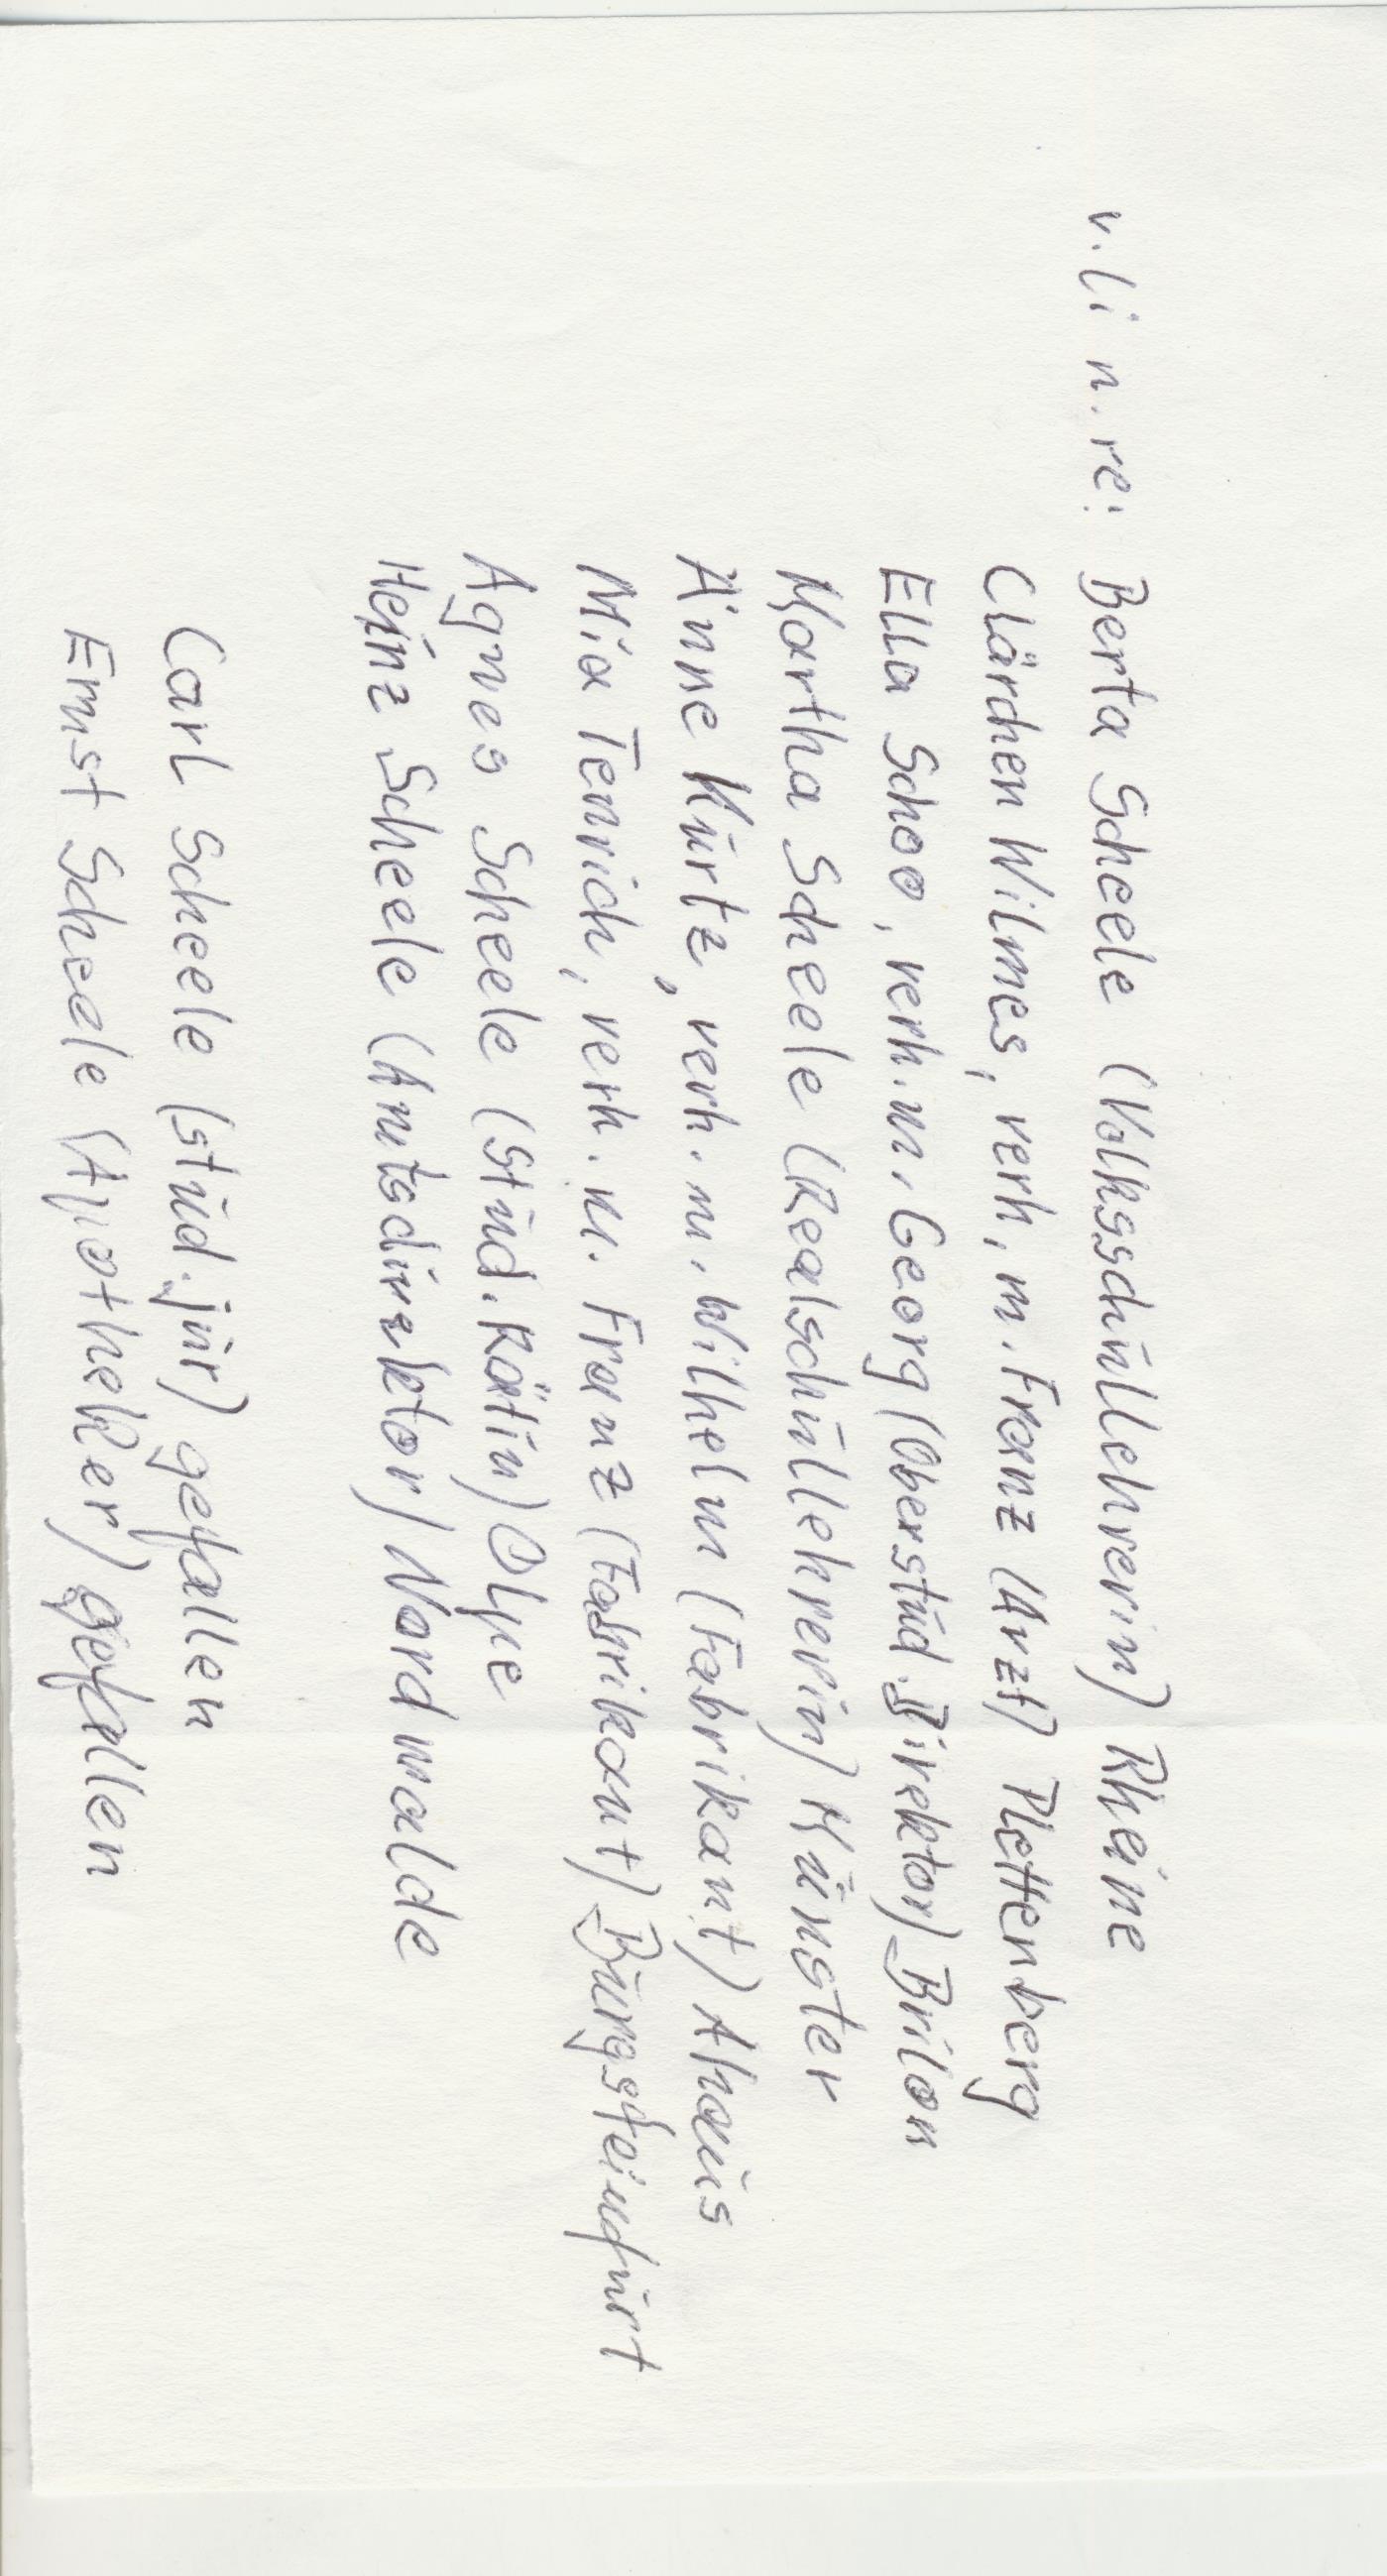 v. li n. re: Berta Scheele (Volksschullehrerin) Rheine
Clärchen Wilmes, verh. m. Franz (Arzt) Plettenberg
Ella Schoo, verh. m. Georg (Oberstud. Direktor) Brilon
Martha Scheele (Realschullehrerin) Münster
Änne Kurtz, verh. m. Wilhelm (Fabrikant) Ahaus
Mia Temrich, verh. m. Franz (Fabrikant) Burgsteinfurt
Agnes Scheele (Stud. Rätin) Olpe
Heinz Scheele (Amtsdirektor) Nordwalde
Carl Scheele (stud. jur) gefallen
Ernst Scheele (Apotheker) gefallen